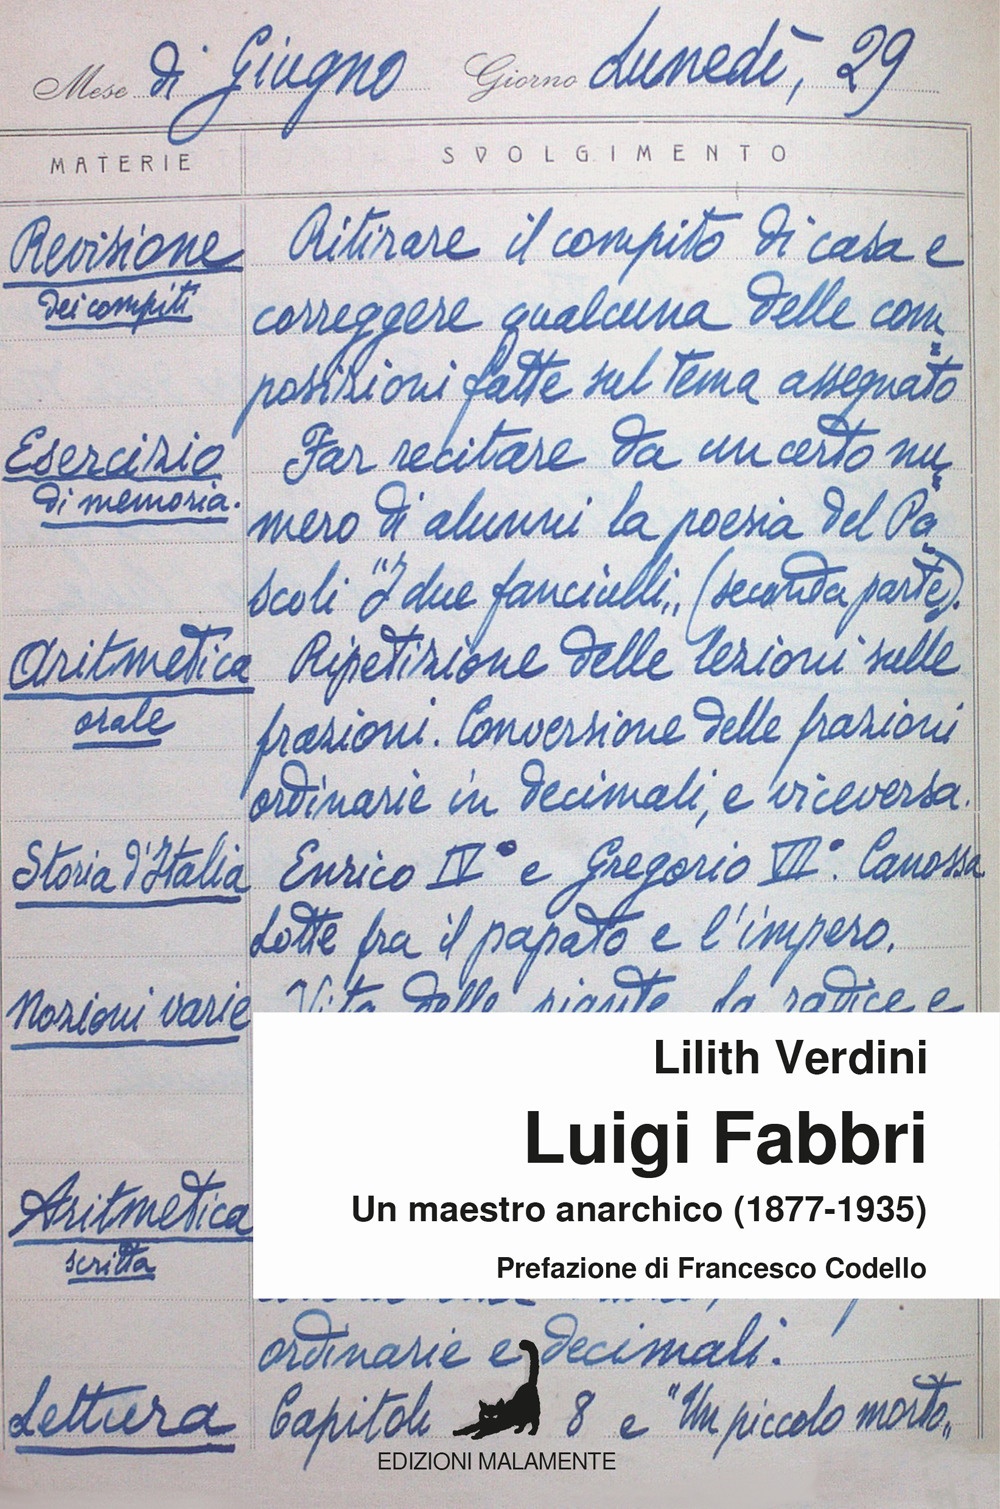 Mese di Giugno Giorno Lunedì, 29
MATERIE SVOLGIMENTO
Revisione
dei compiti
Ritirare il compito di casa e
correggere qualcuna delle com
posizioni fatte sul tema assegnato
Esercizio
di memoria.
Far recitare da un certo nu
mero di alunni la poesia del Pa
scoli "I due fanciulli,, (seconda parte).
Aritmetica
orale
Ripetizione delle lezioni sulle
frazioni. Conversione delle frazioni
ordinarie in decimali, e viceversa.
Storia d'Italia
Enrico IV° e Gregorio VII°. Canossa
Lotte fra il papato e l'impero.
Nozioni varie
Vita delle piante. La radice e
Aritmetica
scritta
ordinarie e decimali.
Lettura
Capitoli 8 e "Un piccolo morto,,
Lilith Verdini
Luigi Fabbri
Un maestro anarchico (1877-1935)
Prefazione di Francesco Codello
EDIZIONI MALAMENTE